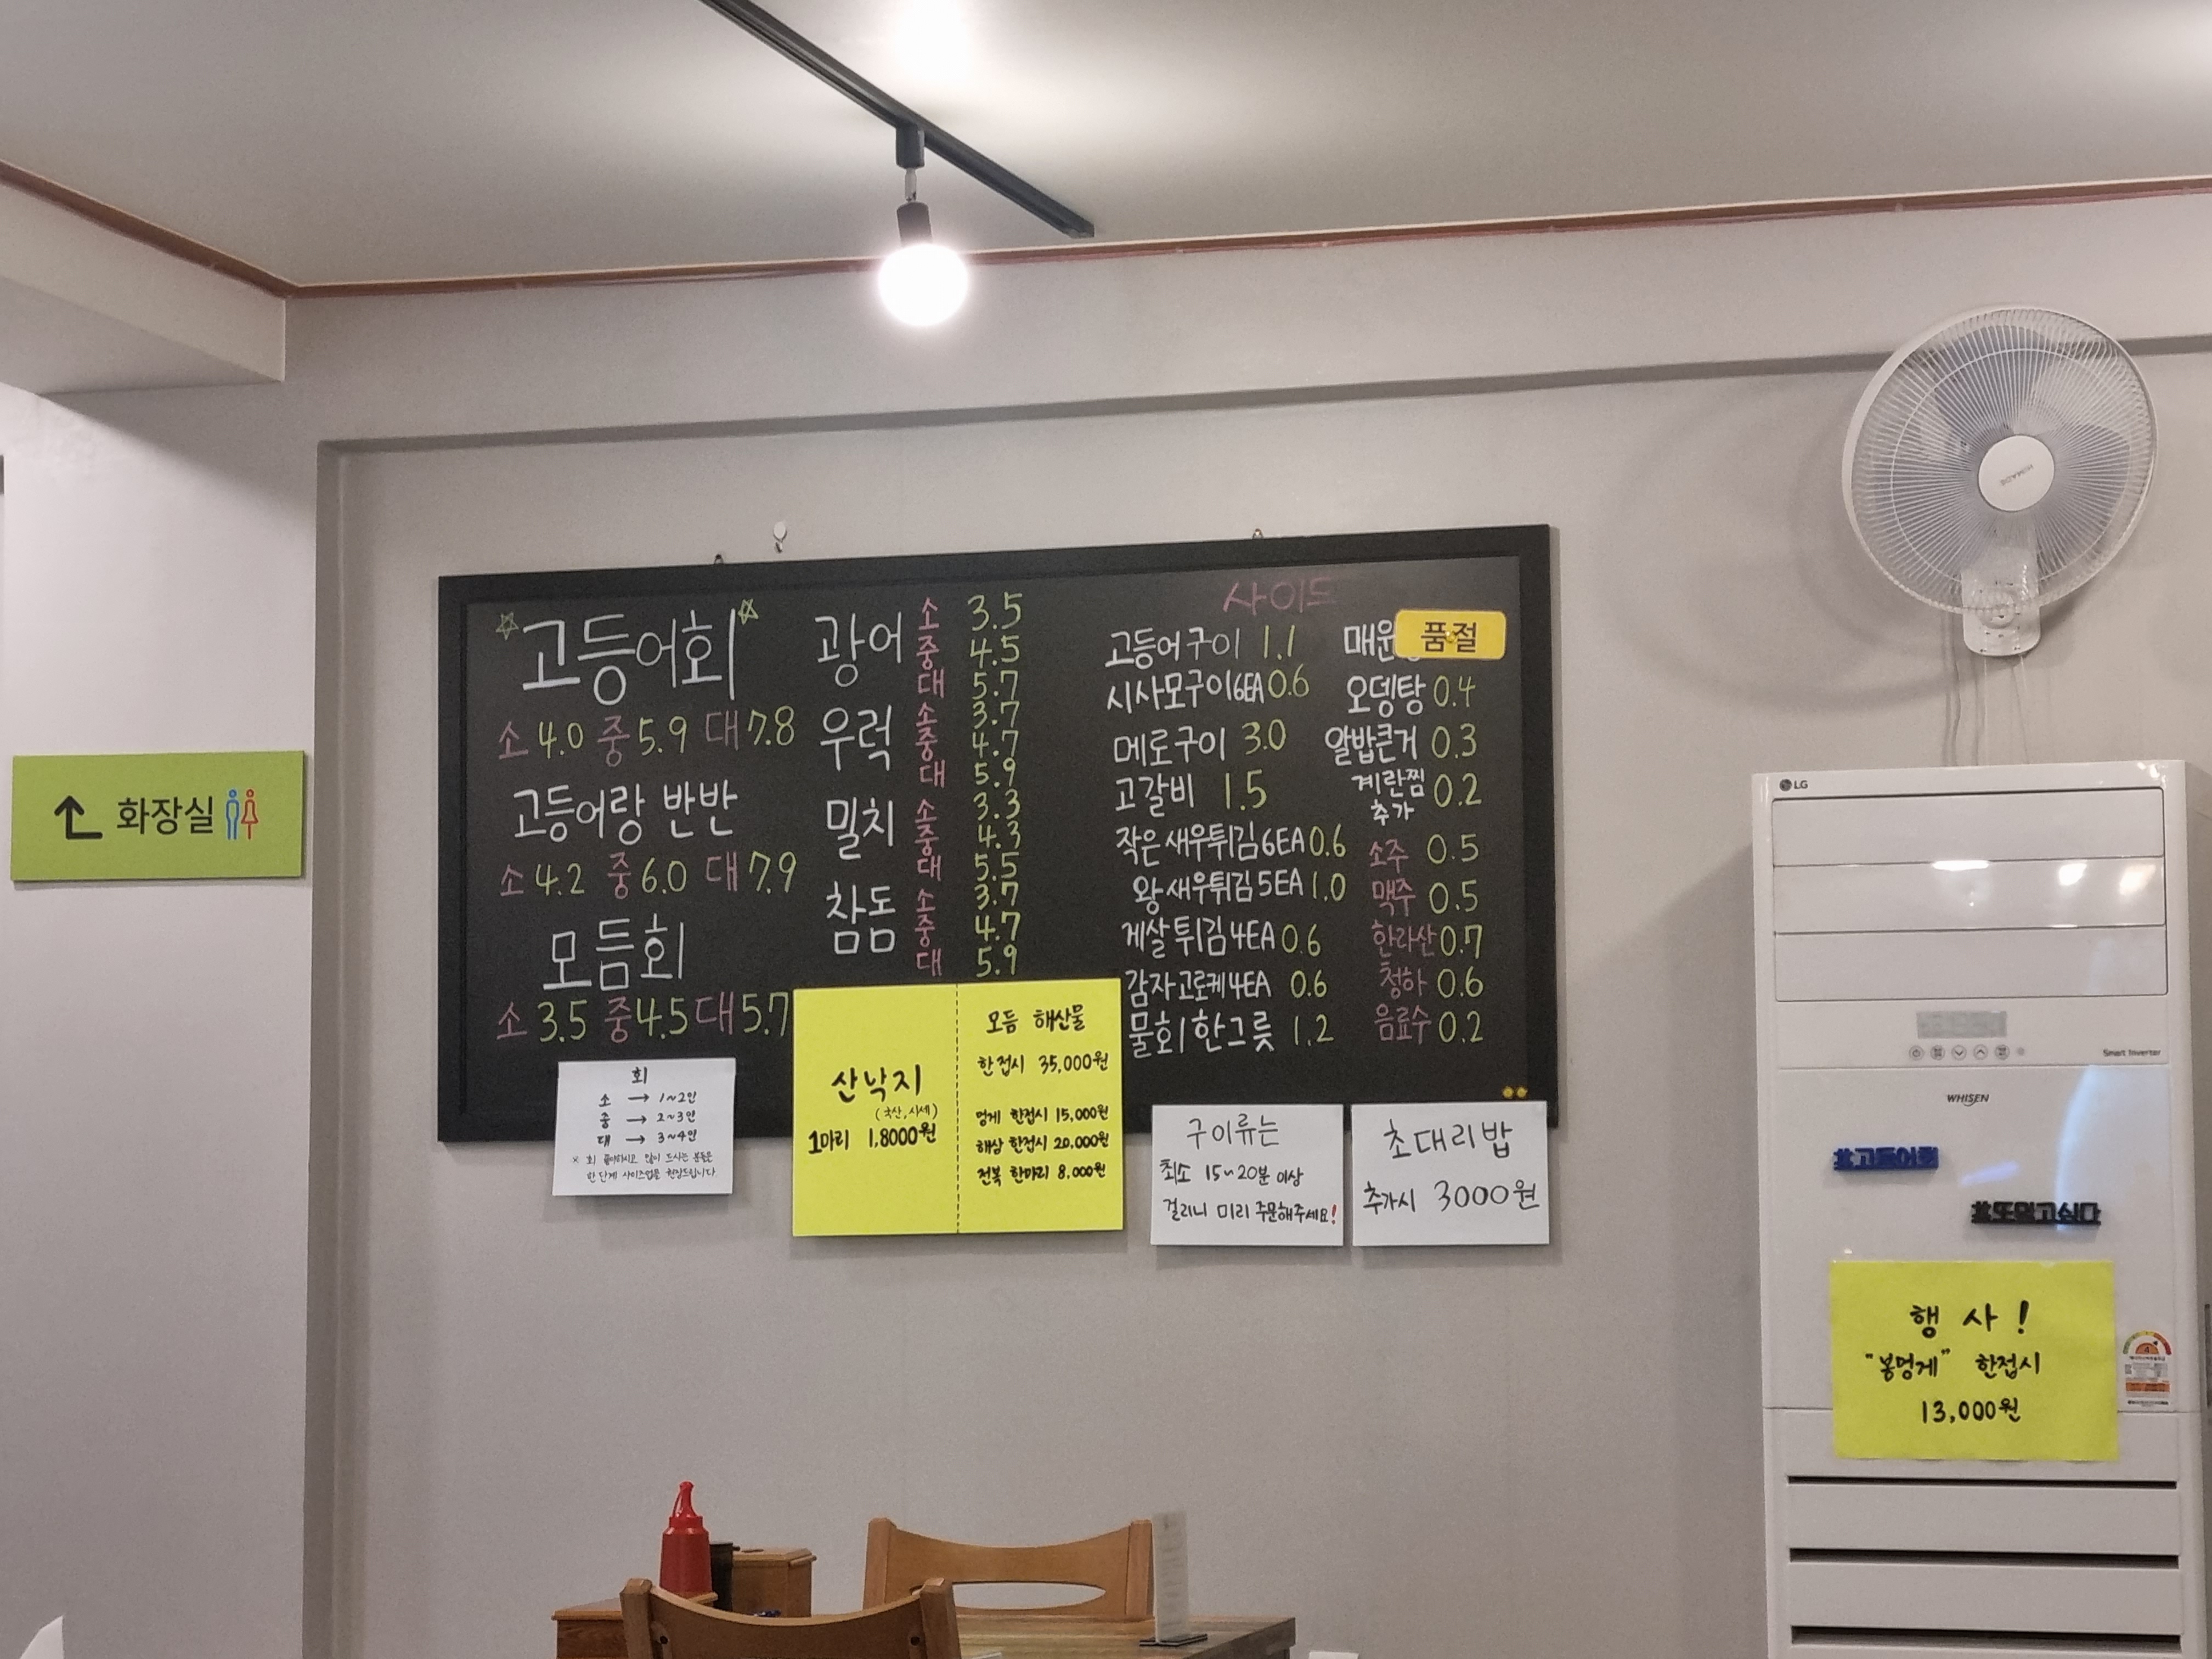 화장실
고등어회
소 4.0 중 5.9 대 7.8
고등어랑 반반
소 4.2 중 6.0 대 7.9
모듬회
소 3.5 중 4.5 대 5.7
광어 소 3.5
중 4.5
대 5.7
우럭 소 3.7
중 4.7
대 5.9
밀치 소 3.3
중 4.3
대 5.5
참돔 소 3.7
중 4.7
대 5.9
사이드
고등어구이 1.1
시사모구이6EA 0.6
메로구이 3.0
고갈비 1.5
작은새우튀김6EA 0.6
왕새우튀김5EA 1.0
게살튀김4EA 0.6
감자고로케4EA 0.6
물회한그릇 1.2
매운
품절
오뎅탕 0.4
알밥큰거 0.3
계란찜
추가 0.2
소주 0.5
맥주 0.5
한라산 0.7
청하 0.6
음료수 0.2
회
소 → 1~2인
중 → 2~3인
대 → 3~4인
※ 회 좋아하시고 많이 드시는 분들은
한단계 사이즈업을 추천드립니다.
산낙지
(국산, 시세)
1마리 1,8000원
모듬 해산물
한접시 35,000원
멍게 한접시 15,000원
해삼 한접시 20,000원
전복 한마리 8,000원
구이류는
최소 15~20분 이상
걸리니 미리 주문해주세요!
초대리밥
추가시 3000원
LG
Smart Inverter
WHISEN
#고등어회
#또먹고싶다
행 사 !
"봉멍게" 한접시
13,000원